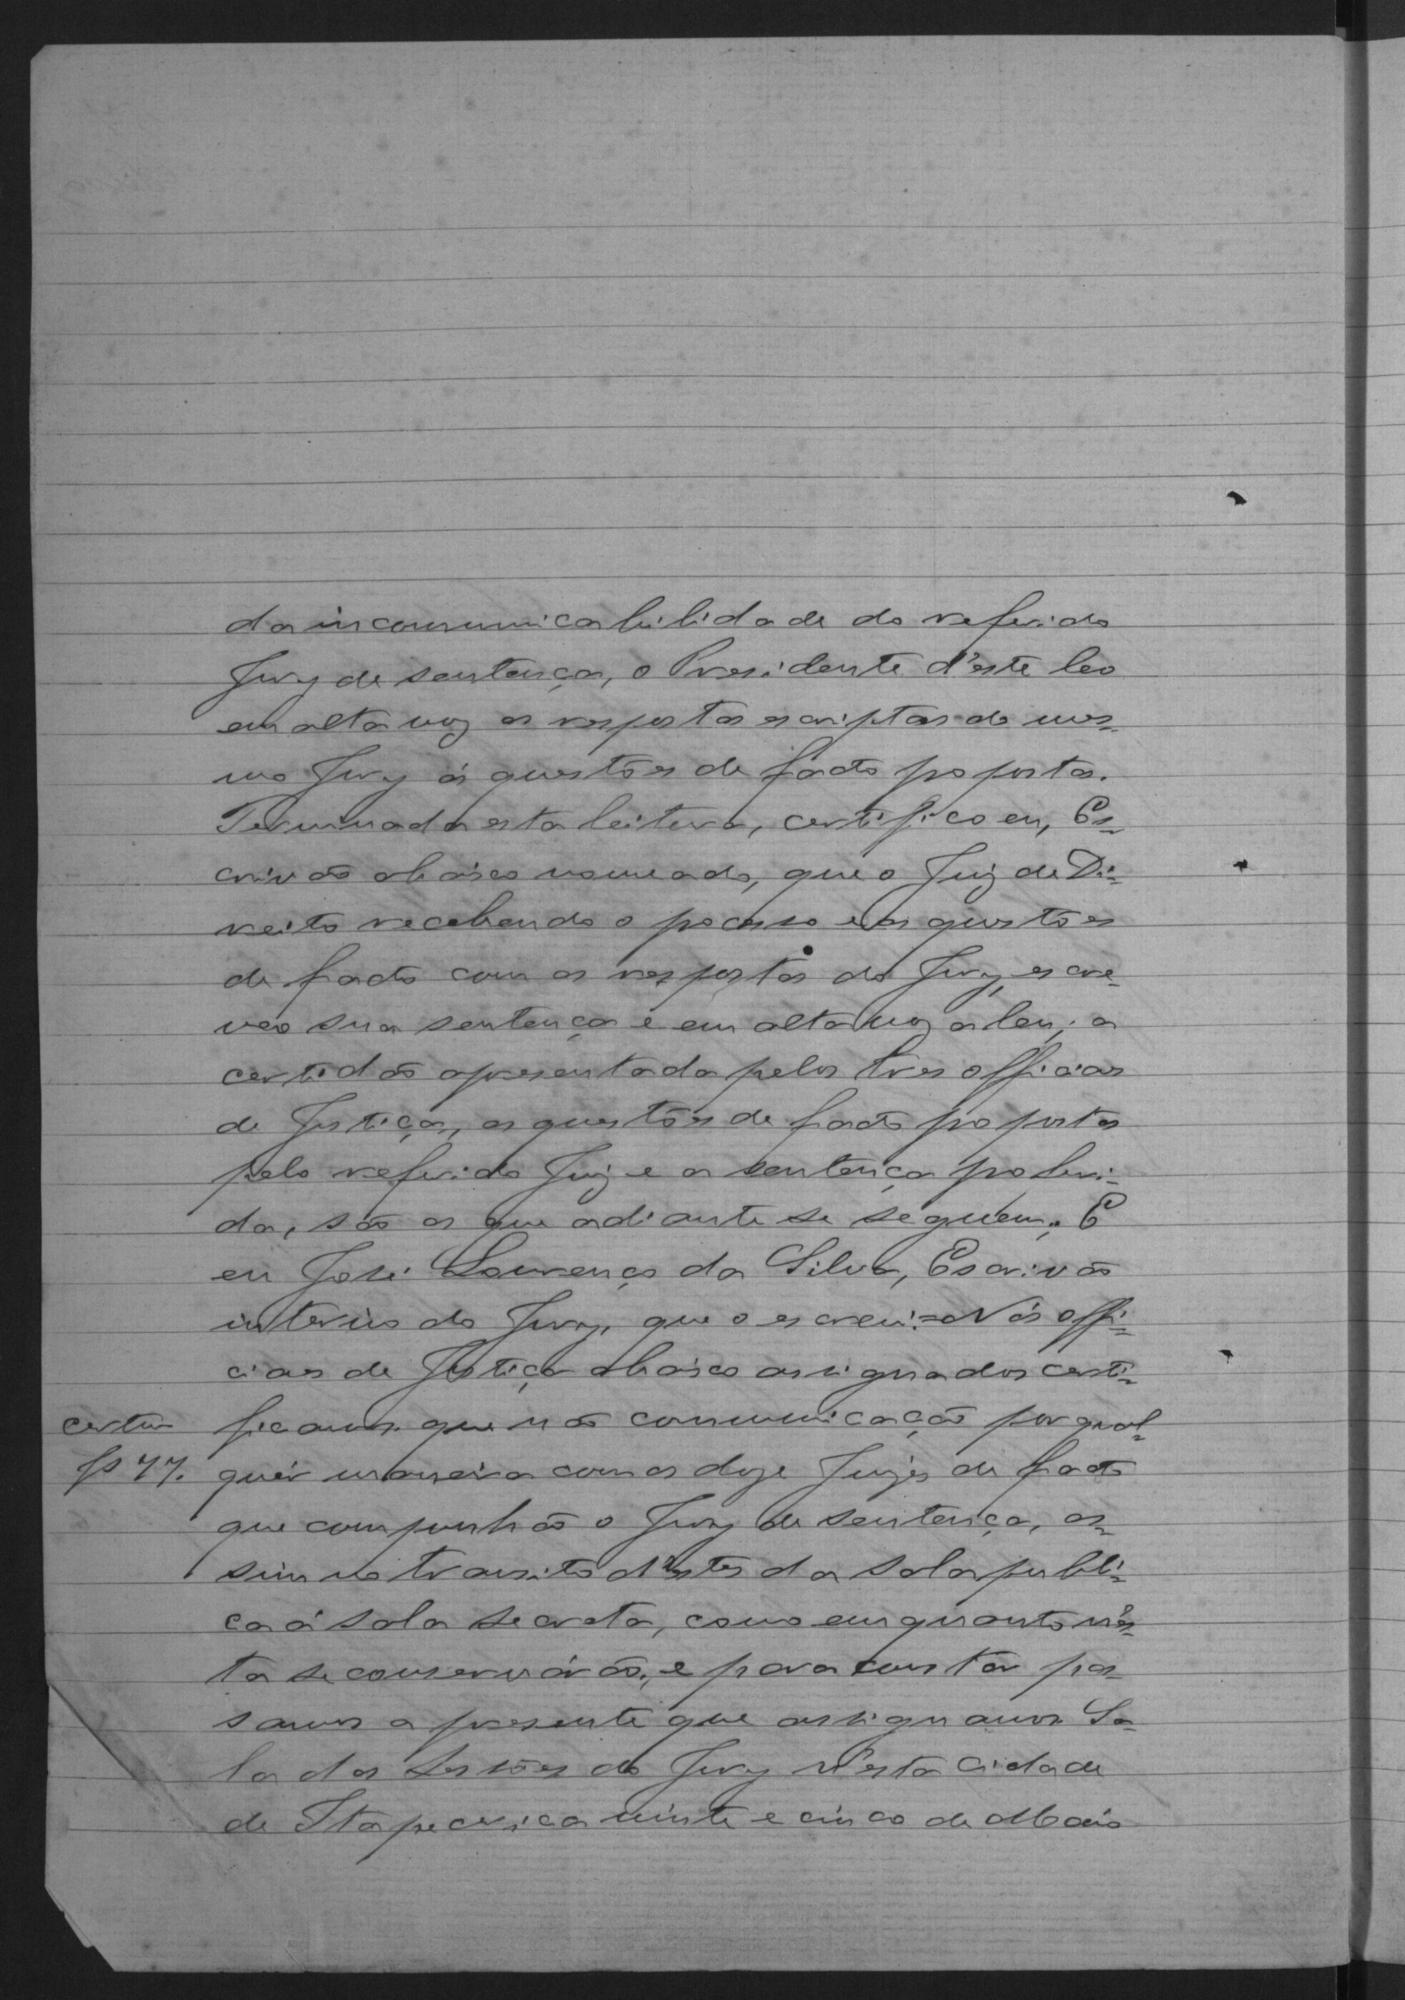 da incommunicabilidade do referido
Jury de sentença, o Presidente d'este leo
em alta voz as respostas escriptas do mes-
mo Jury ás questões de facto propostas.
Terminada esta leitura, certifico eu, Es-
crivão abáixo nomeado, que o Juiz de Di-
reito recebendo o processo e as questões
de facto com as respostas do Jury, escre-
veo sua sentença e em alta voz a leu; a
certidão apresentada pelos tres officiaes
de Justiça, as questões de facto propostas
pelo referido Juiz e a sentença proferi-
da, são as que adiante se seguem. E
eu José Lourenço da Silva, Escrivão
interino do Jury, que o escrevi = Nós offi-
ciaes de Justiça abáixo assignados certi-
certam ficamos que não communicação por qual-
fs 77. quér maneira com os doze Juizes de facto
que compunhão o Jury de sentença, as-
sim no transito d'estes da sala publi-
ca á sala secreta, como em quanto n'es-
ta se conservárão, e para constar pas-
samos a presente que assignamos Sa-
la das Sessões do Jury n'esta Cidade
de Itapecerica vinte e cinco de Maio